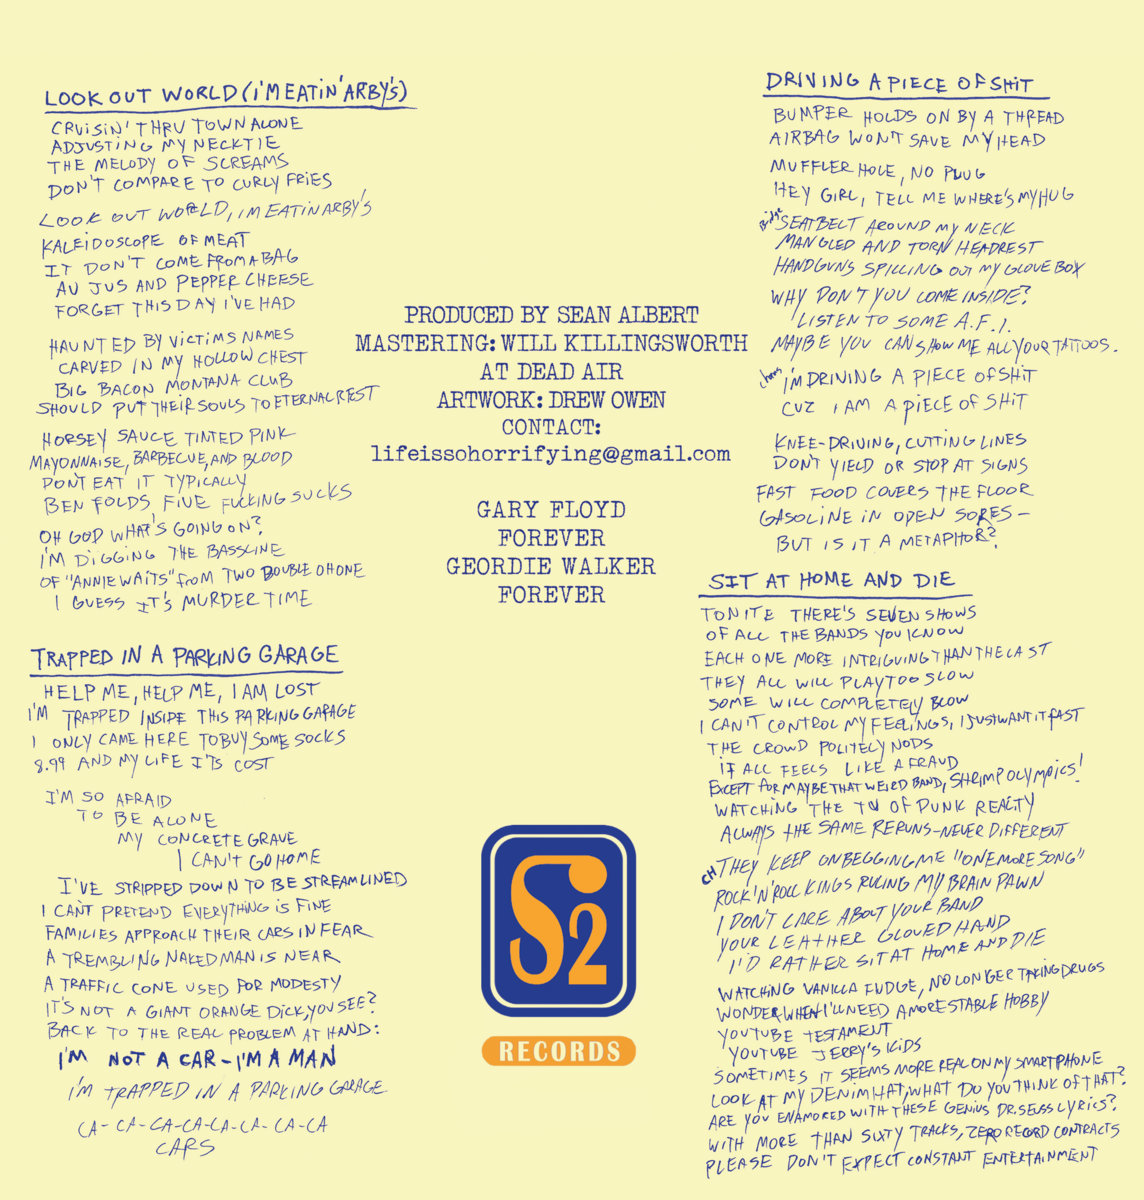 LOOK OUT WORLD (I'M EATIN' ARBY'S)
CRUISIN' THRU TOWN ALONE
ADJUSTING MY NECKTIE
THE MELODY OF SCREAMS
DON'T COMPARE TO CURLY FRIES
LOOK OUT WORLD, I'M EATIN ARBY'S
KALEIDOSCOPE OF MEAT
IT DON'T COME FROM A BAG
AU JUS AND PEPPER CHEESE
FORGET THIS DAY I'VE HAD
HAUNTED BY VICTIMS NAMES
CARVED IN MY HOLLOW CHEST
BIG BACON MONTANA CLUB
SHOULD PUT THEIR SOULS TO ETERNAL REST
HORSEY SAUCE TINTED PINK
MAYONNAISE, BARBECUE, AND BLOOD
DON'T EAT IT TYPICALLY
BEN FOLDS FIVE FUCKING SUCKS
OH GOD WHAT'S GOING ON?
I'M DIGGING THE BASSLINE
OF "ANNIE WAITS" from TWO DOUBLE OH ONE
I GUESS IT'S MURDER TIME
TRAPPED IN A PARKING GARAGE
HELP ME, HELP ME, I AM LOST
I'M TRAPPED INSIDE THIS PARKING GARAGE
I ONLY CAME HERE TO BUY SOME SOCKS
8.99 AND MY LIFE ITS COST
I'M SO AFRAID
TO BE ALONE
MY CONCRETE GRAVE
I CAN'T GO HOME
I'VE STRIPPED DOWN TO BE STREAMLINED
I CAN'T PRETEND EVERYTHING IS FINE
FAMILIES APPROACH THEIR CARS IN FEAR
A TREMBLING NAKED MAN IS NEAR
A TRAFFIC CONE USED FOR MODESTY
IT'S NOT A GIANT ORANGE DICK, YOU SEE?
BACK TO THE REAL PROBLEM AT HAND:
I'M NOT A CAR - I'M A MAN
I'M TRAPPED IN A PARKING GARAGE
CA- CA- CA- CA- CA- CA- CA- CA
CARS
PRODUCED BY SEAN ALBERT
MASTERING: WILL KILLINGSWORTH
AT DEAD AIR
ARTWORK: DREW OWEN
CONTACT:
lifeissohorrifying@gmail.com
GARY FLOYD
FOREVER
GEORDIE WALKER
FOREVER
S2
RECORDS
DRIVING A PIECE OF SHIT
BUMPER HOLDS ON BY A THREAD
AIRBAG WON'T SAVE MY HEAD
MUFFLER HOLE, NO PLUG
HEY GIRL, TELL ME WHERE'S MY HUG
Bridge SEATBELT AROUND MY NECK
MANGLED AND TORN HEADREST
HANDGUNS SPILLING OUT MY GLOVE BOX
WHY DON'T YOU COME INSIDE?
LISTEN TO SOME A.F.I.
MAYBE YOU CAN SHOW ME ALL YOUR TATTOOS.
chorus I'M DRIVING A PIECE OF SHIT
CUZ I AM A PIECE OF SHIT
KNEE-DRIVING, CUTTING LINES
DON'T YIELD OR STOP AT SIGNS
FAST FOOD COVERS THE FLOOR
GASOLINE IN OPEN SORES -
BUT IS IT A METAPHOR?
SIT AT HOME AND DIE
TONITE THERE'S SEVEN SHOWS
OF ALL THE BANDS YOU KNOW
EACH ONE MORE INTRIGUING THAN THE LAST
THEY ALL WILL PLAY TOO SLOW
SOME WILL COMPLETELY BLOW
I CAN'T CONTROL MY FEELINGS, I JUST WANT IT FAST
THE CROWD POLITELY NODS
IT ALL FEELS LIKE A FRAUD
EXCEPT FOR MAYBE THAT WEIRD BAND, SHRIMP OLYMPICS!
WATCHING THE TV OF PUNK REALITY
ALWAYS THE SAME RERUNS - NEVER DIFFERENT
CH THEY KEEP ON BEGGING ME "ONE MORE SONG"
ROCK 'N' ROLL KINGS RULING MY BRAIN PAWN
I DON'T CARE ABOUT YOUR BAND
YOUR LEATHER GLOVED HAND
I'D RATHER SIT AT HOME AND DIE
WATCHING VANILLA FUDGE, NO LONGER TAKING DRUGS
WONDER WHEN I'LL NEED A MORE STABLE HOBBY
YOUTUBE TESTAMENT
YOUTUBE JERRY'S KIDS
SOMETIMES IT SEEMS MORE REAL ON MY SMARTPHONE
LOOK AT MY DENIM HAT, WHAT DO YOU THINK OF THAT?
ARE YOU ENAMORED WITH THESE GENIUS DR. SEUSS LYRICS?
WITH MORE THAN SIXTY TRACKS, ZERO RECORD CONTRACTS
PLEASE DON'T EXPECT CONSTANT ENTERTAINMENT